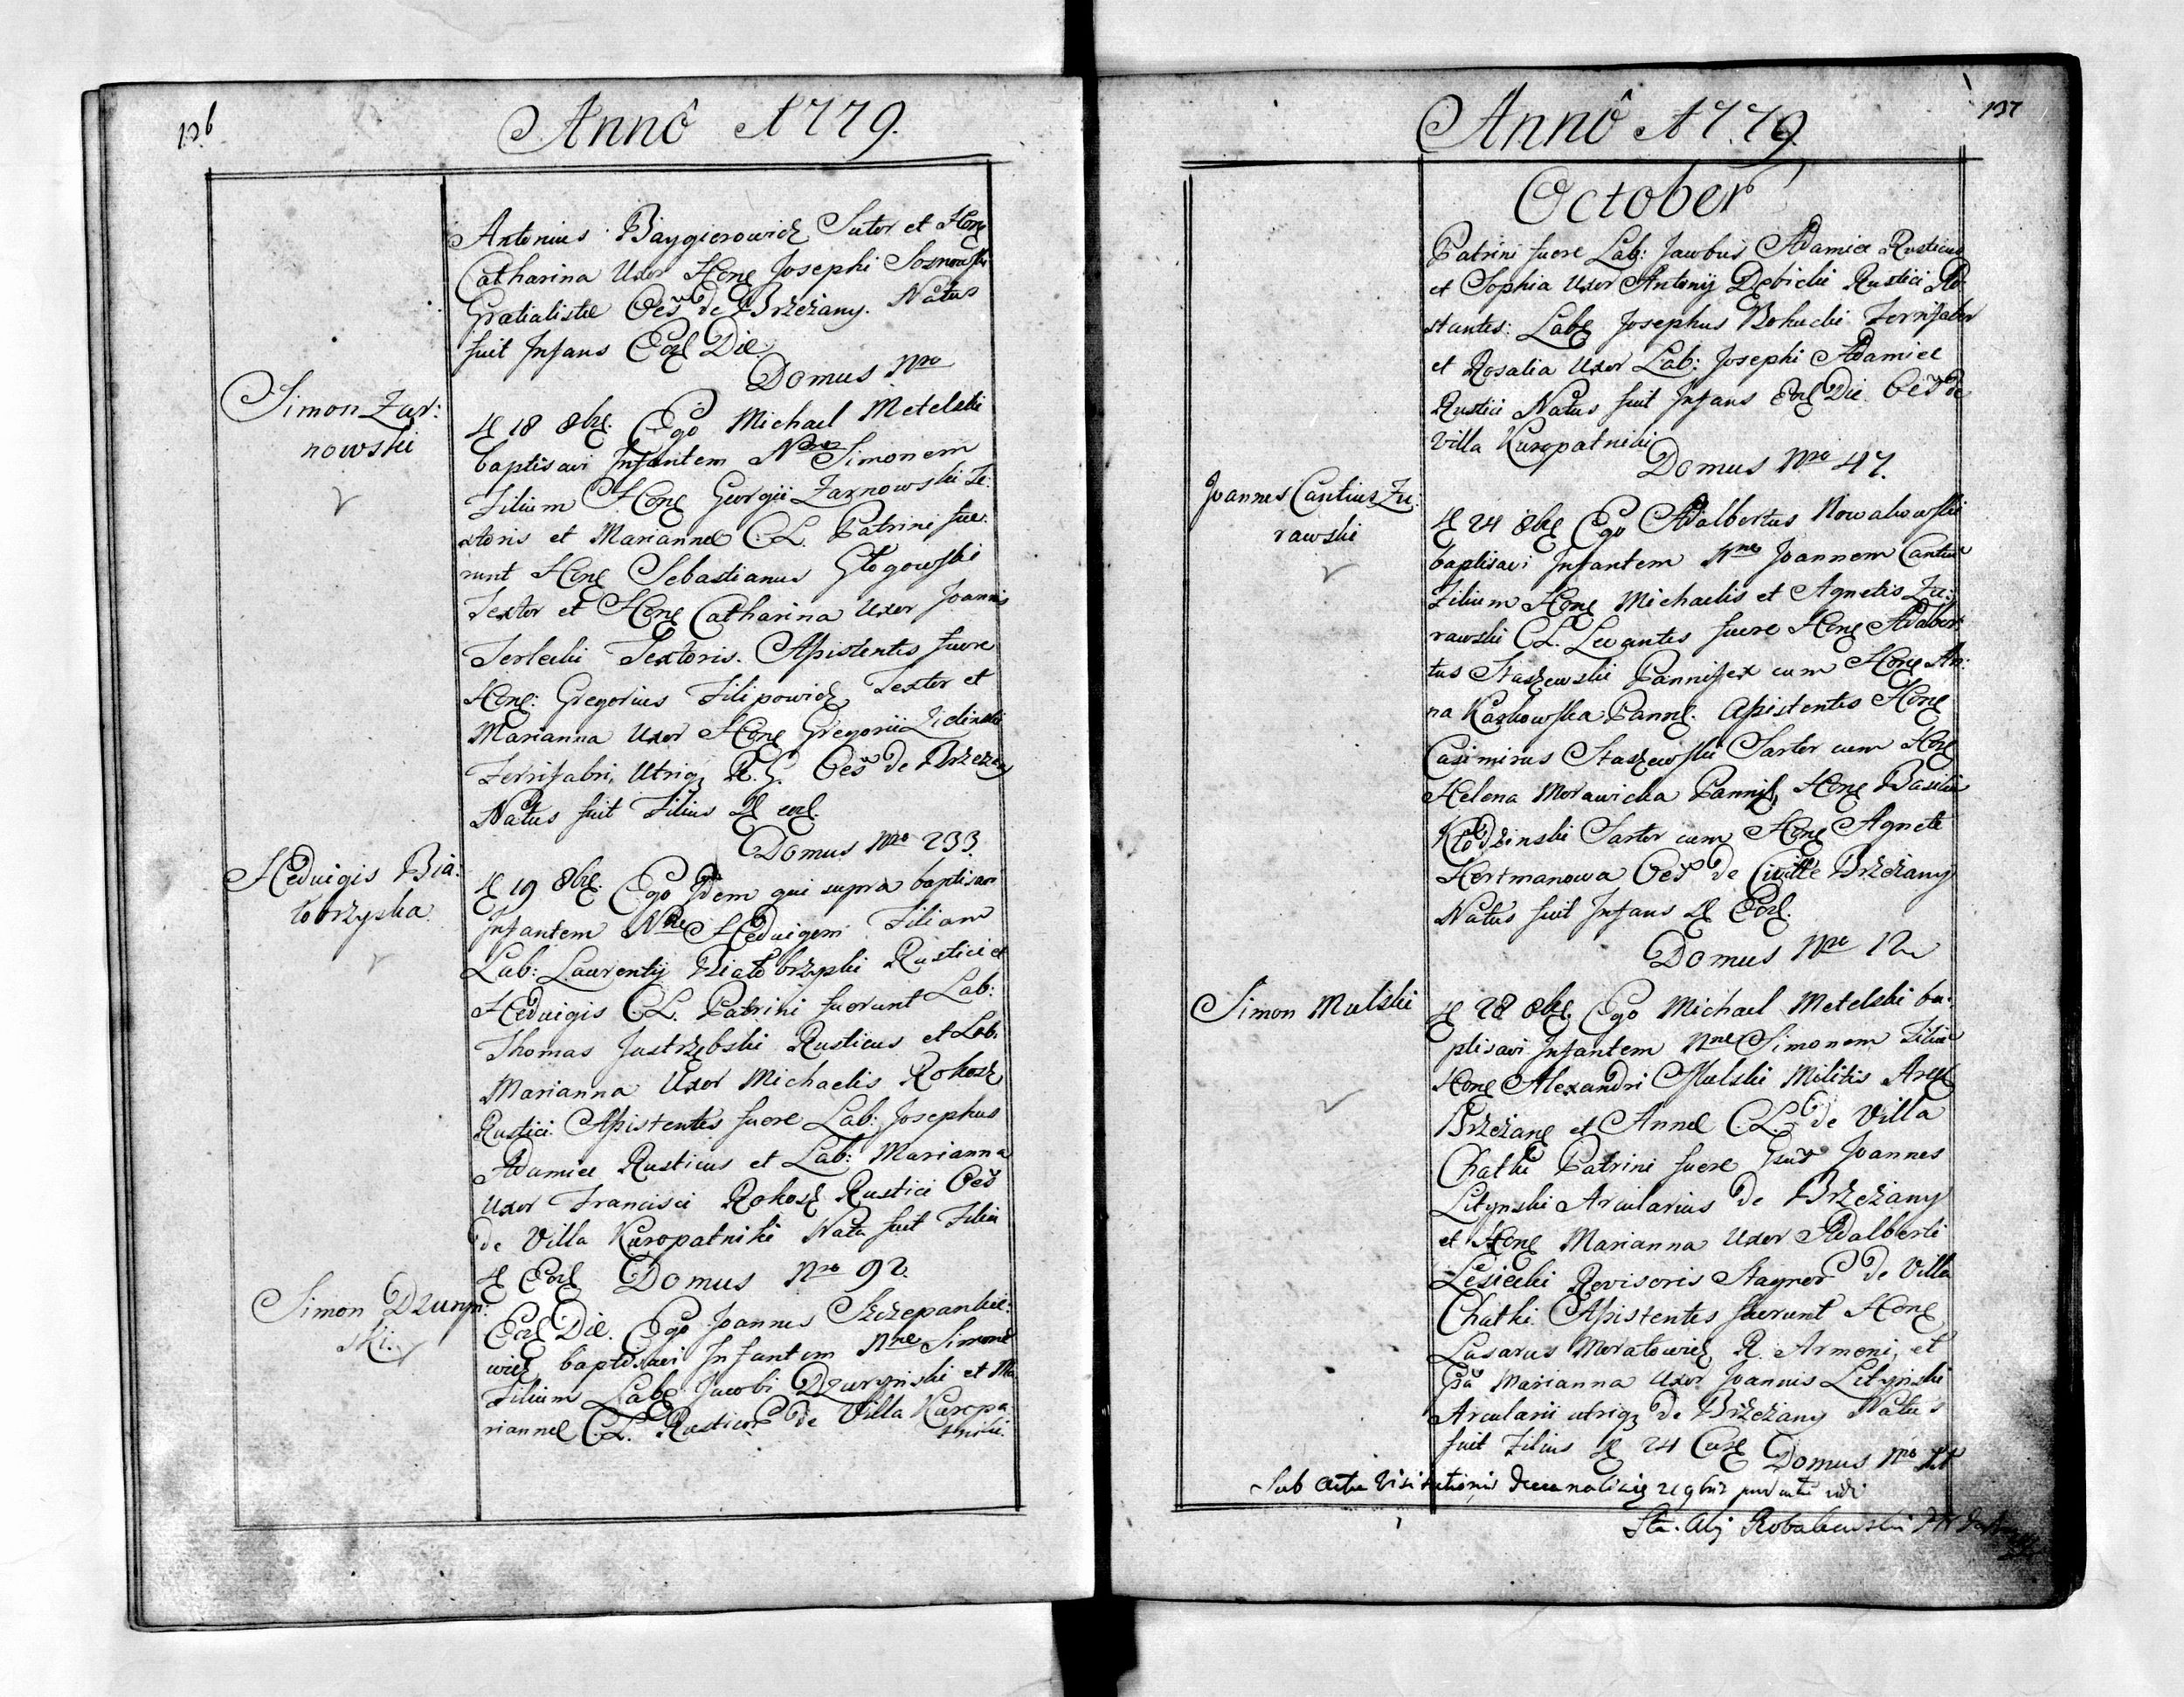 136
Annô 1779.
Antonius Baygierowicz Sutor et Hone
Catharina Uxor Hone Josephi Sosnowski
Gratialistæ Oes de Brzeżany. Natus
fuit Infans Eod Die.
Domus Nro
Simon Żar:
nowski
D 18 8bre. Ego Michael Metelski
baptisavi Infantem Nne Simonem
Filium Hone Georgii Żarnowski Te:
xtoris et Mariannæ C.L. Patrini fue:
runt Hone Sebastianus Głogowski
Textor et Hone Catharina Uxor Joannis
Terlecki Textoris. Assistentes fuere
Hone: Gregorius Filipowicz Textor et
Marianna Uxor Hone Gregorii Zielinski
Ferrifabri, Utriqz R. G. Oes de Brzeżany
Natus fuit Filius D eod.
Domus Nro 233.
Heduigis Bia:
łobrzyska.
D 19 8bre. Ego Idem qui supra baptisavi
Infantem Nne Heduigem Filiam
Lab: Laurentij Białobrzyski Rustici et
Heduigis C.L. Patrini fuerunt Lab:
Thomas Jastrzębski Rusticus et Lab:
Marianna Uxor Michaelis Rokosz
Rustici. Assistentes fuere Lab: Josephus
Adamiec Rusticus et Lab: Marianna
Uxor Francisci Rokosz Rustici Oes
de Villa Kuropatniki Nata fuit Filia
D Eod Domus Nro 92.
Simon Dzuryn:
ski.
Eod Die. Ego Joannes Szczepankie:
wicz baptisavi Infantem Nne Simone
Filium Lab Jacobi Dzurynski et Ma
riannæ C.L. Rusticor de Villa Kuropa
tniki.
137
Annô 1779.
October
Patrini fuere Lab: Jacobus Adamiec Rusticus
et Sophia Uxor Antonij Dębicki Rustici As:
stantes: Lab Josephus Bohucki Ferrifaber
et Rosalia Uxor Lab: Josephi Adamiec
Rustici Natus fuit Infans Eod Die. Oes de
Villa Kuropatniki
Domus Nro 47.
Joannes Cantius Żu:
rawski
D 24 8bre Ego Adalbertus Nowakowski
baptisavi Infantem Nne Joannem Cantiu
Filium Hone Michaelis et Agnetis Żu:
rawski C.L. Levantes fuere Hone Adalber:
tus Staszewski Pannifex cum Hone An:
na Kaszkowska Panne. Assistentes Hone
Casimirus Staszewski Sartor cum Hone
Helena Morawicka Pannif, Hone Basilius
Kłodzinski Sartor cum Hone Agnete
Hertmanowa Oes de Civitte Brzeżany
Natus fuit Infans D Eod.
Domus Nro 12
Simon Mulski
D 28 8bre. Ego Michael Metelski ba:
ptisavi Infantem Nne Simonem Filiu
Hone Alexandri Mulski Militis Arcy
Brzeżane et Annæ C.L. de Villa
Chatki Patrini fuere Joannes
Litynski Arcularius de Brzeżany
et Hone Marianna Uxor Adalberti
Lesiecki Revisoris Stagnor de Villa
Chatki. Assistentes fuerunt Hone
Lasarus Moratowicz R. Armeni, et
Marianna Uxor Joannis Litynski
Arcularii utriqz de Brzeżany Natus
fuit Filius D 24 Cure Domus Nro
Sub Actu Visitationis Decanalis